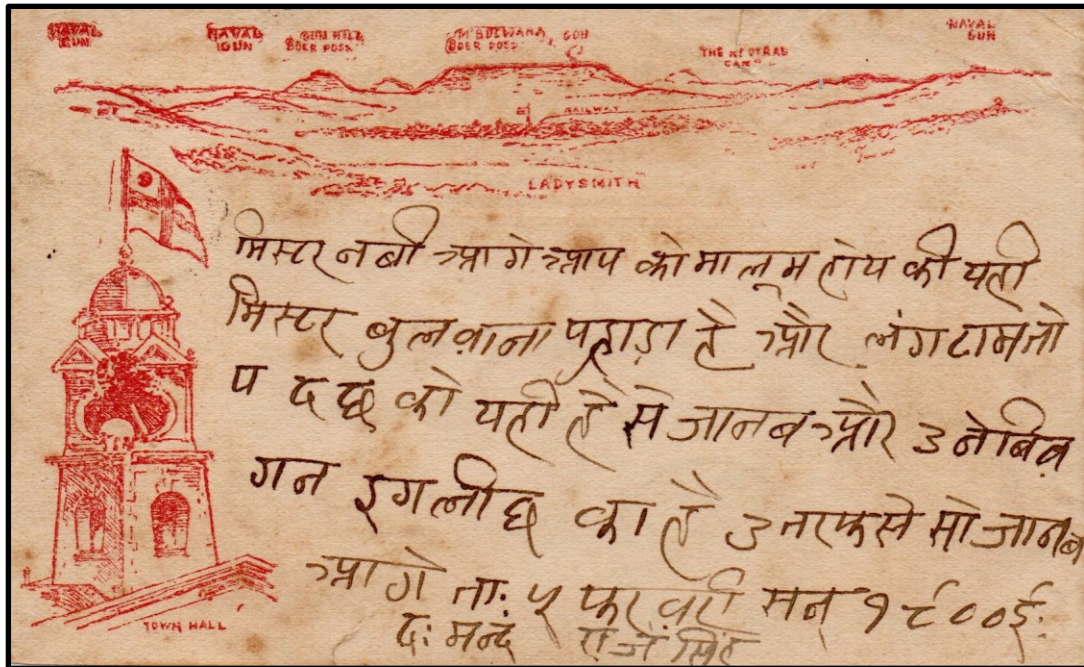 NAVAL GUN
NAVAL GUN
GUN HILL
BOER POSN
M'BULWANA
BOER POSN
GUN
THE NEUTRAL
CAMP
NAVAL
GUN
RAILWAY
LADYSMITH
मिस्टर नबी आगे आप को मालूम होय की यही
मिस्टर बुलवाना पहाड़ा है और लंगटामतो
प ६६ को यही है से जानब और उ नेबिव
गन इगलीछ का है उ तरफसे सो जानब
आगे ता: ५ फरवरी सन् १९००ई.
द: मन्द सिंह
TOWN HALL